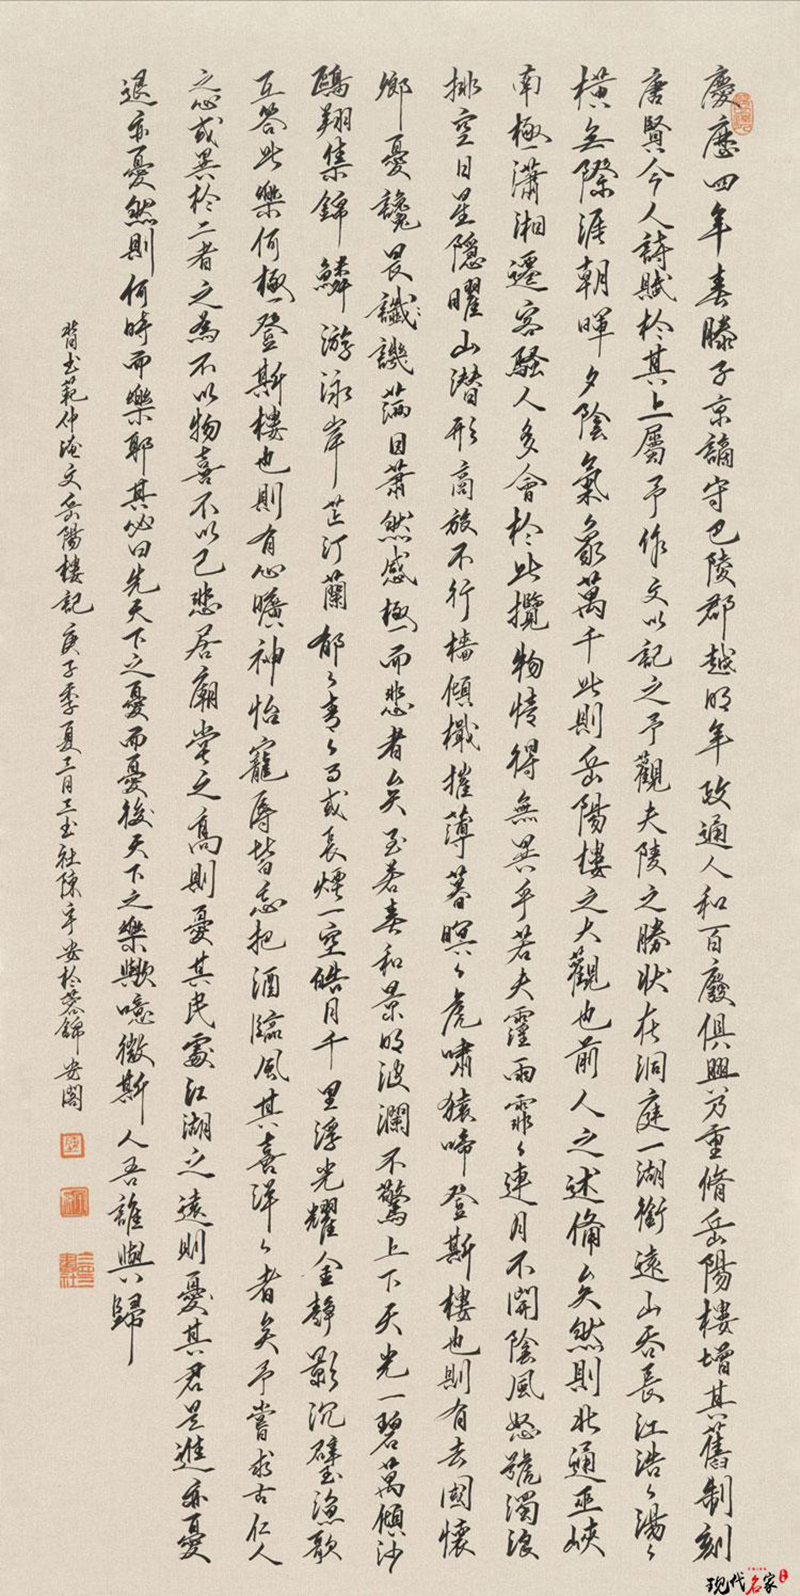 慶歷四年春滕子京謫守巴陵郡越明年政通人和百廢俱興乃重脩岳陽樓增其舊制刻
唐賢今人詩賦於其上屬予作文以記之予觀夫陵之勝狀在洞庭一湖銜遠山吞長江浩〻湯〻
橫無際涯朝暉夕陰氣象萬千此則岳陽樓之大觀也前人之述備矣然則北通巫峽
南極瀟湘遷客騷人多會於此攬物情得無異乎若夫霪雨霏〻連月不開陰風怒號濁浪
排空日星隱曜山潛形商旅不行檣傾檝摧薄暮暝〻虎嘯猿啼登斯樓也則有去國懷
鄉憂讒畏讖譏滿目蕭然感極而悲者矣至若春和景明波瀾不驚上下天光一碧萬頃沙
鷗翔集錦鱗游泳岸芷汀蘭郁〻青〻而或長煙一空皓月千里浮光耀金靜影沉璧漁歌
互答此樂何極登斯樓也則有心曠神怡寵辱皆忘把酒臨風其喜洋〻者矣予嘗求古仁人
之心或異於二者之為不以物喜不以己悲居廟堂之高則憂其民處江湖之遠則憂其君是進亦憂
退亦憂然則何時而樂耶其必曰先天下之憂而憂後天下之樂歟噫微斯人吾誰與歸
背書范仲淹文岳陽樓記庚子季夏三月三書社陳宇安於蓉錦安閣
现代名家